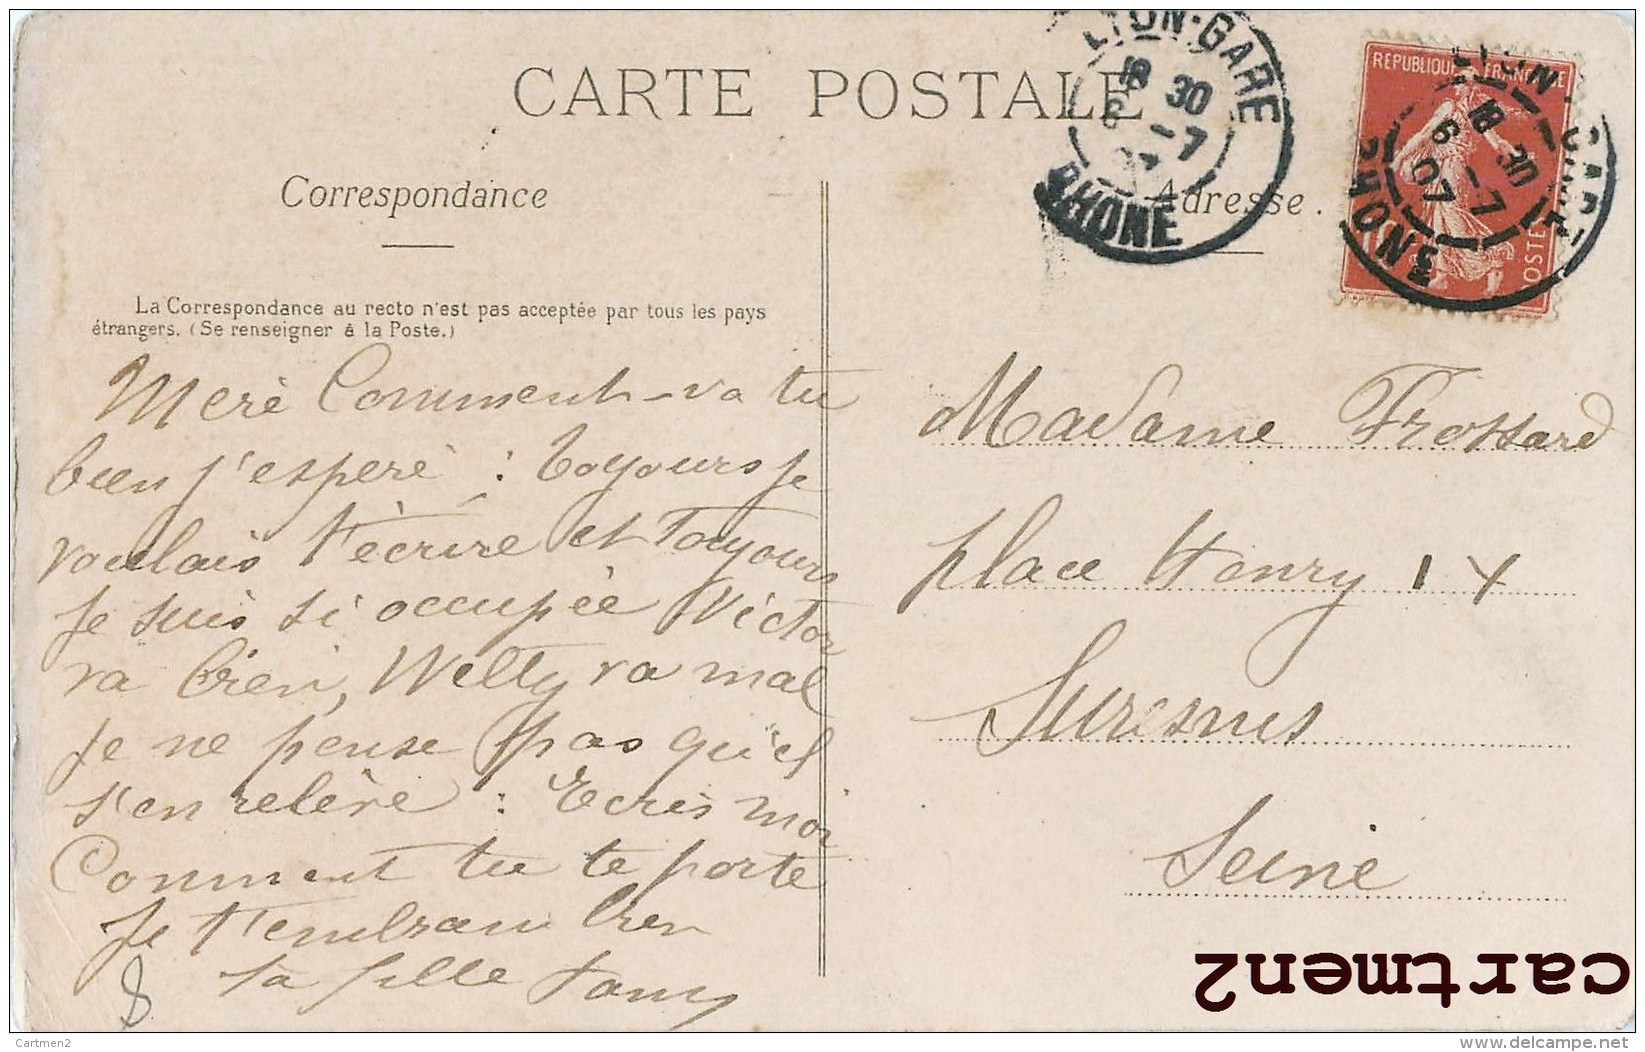 CARTE POSTALE
LYON-GARE
18 30
6 -7
RHONE
RÉPUBLIQUE FRANÇAISE
LYON-GARE
18 30
6 -7
07
RHONE
POSTES
Correspondance
Adresse.
La Correspondance au recto n'est pas acceptée par tous les pays
étrangers. (Se renseigner à la Poste.)
Merè Comment-va tu
bien j'esperè : toyours je
voulais t'ècrire et Toyours
je suis si occupèe Victor
va bien, Welty va mal
je ne pense pas qu'il
s'en relève : Ecris moi
Comment tu te porte
Je t'embrasse bien
ta fille
8
Madame Frossard
place Henry IV
Suresnes
Seine
cartmen2
Cartmen2
delcampe.net